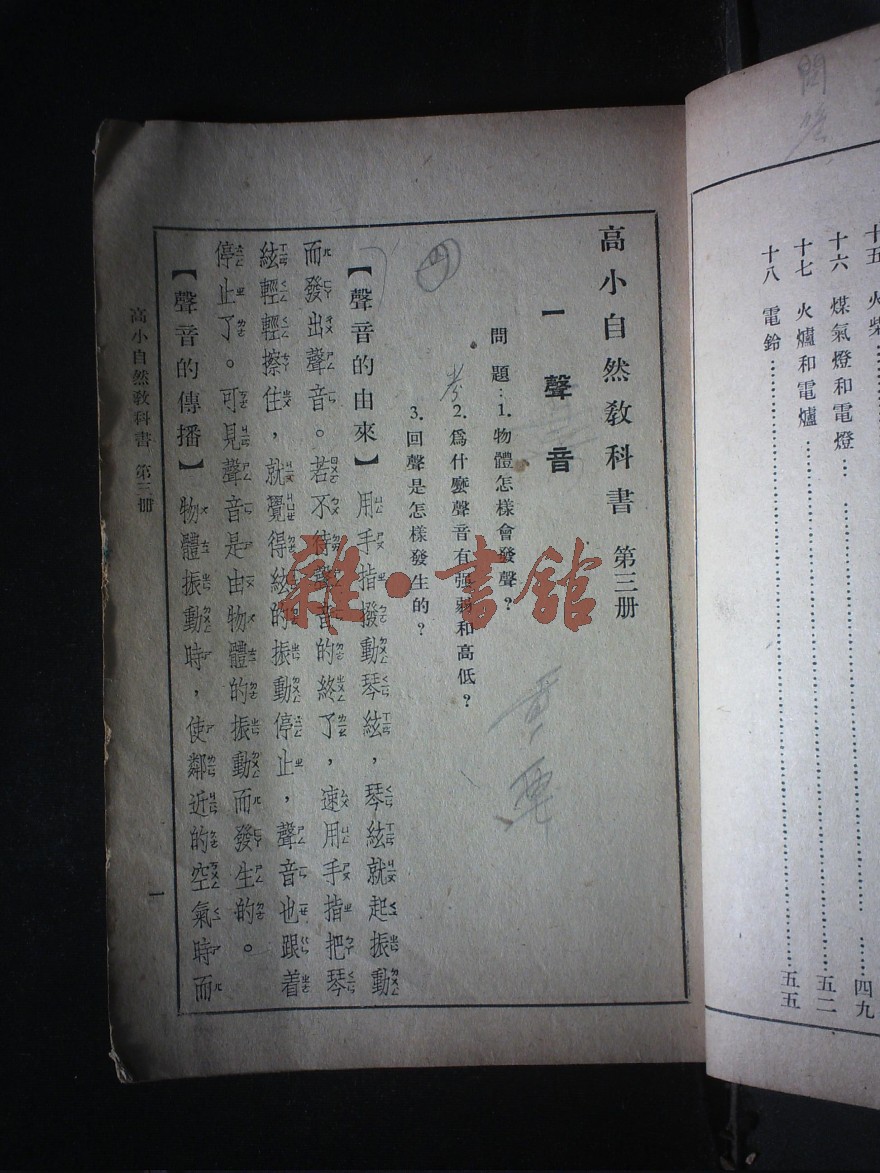 十五 火柴
十六 煤氣燈和電燈…………四九
十七 火爐和電爐…………五二
十八 電鈴…………五五
高小自然教科書 第三册
一 聲音
問題：1. 物體怎樣會發聲？
2. 爲什麼聲音有強弱和高低？
3. 回聲是怎樣發生的？
【聲音的由來】用手指撥動琴絃，琴絃就起振動
而發出聲音。若不待聲音的終了，速用手指把琴
絃輕輕擦住，就覺得絃的振動停止，聲音也跟着
停止了。可見聲音是由物體的振動而發生的。
【聲音的傳播】物體振動時，使鄰近的空氣時而
高小自然教科書 第三册
一
雜·書館